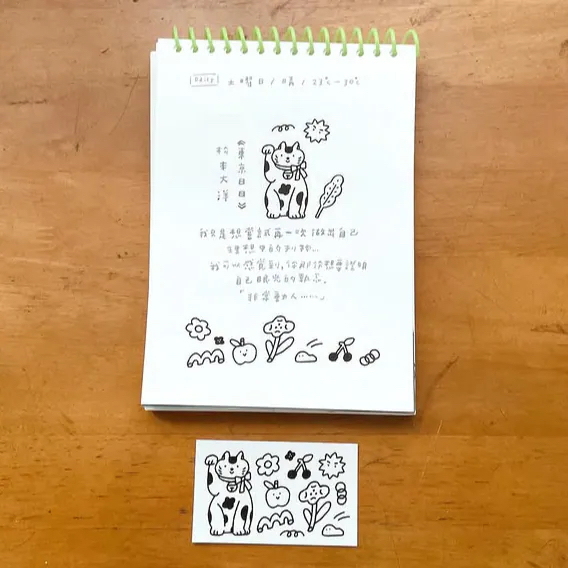 Daily
曜日 / 晴 / 23℃—30℃
《東京日日》
松本大洋
我只是想嘗試再一次做出自己
理想中的刊物…
我可以感覺到,你那份想要證明
自己眼光的執念。
「非常動人……」